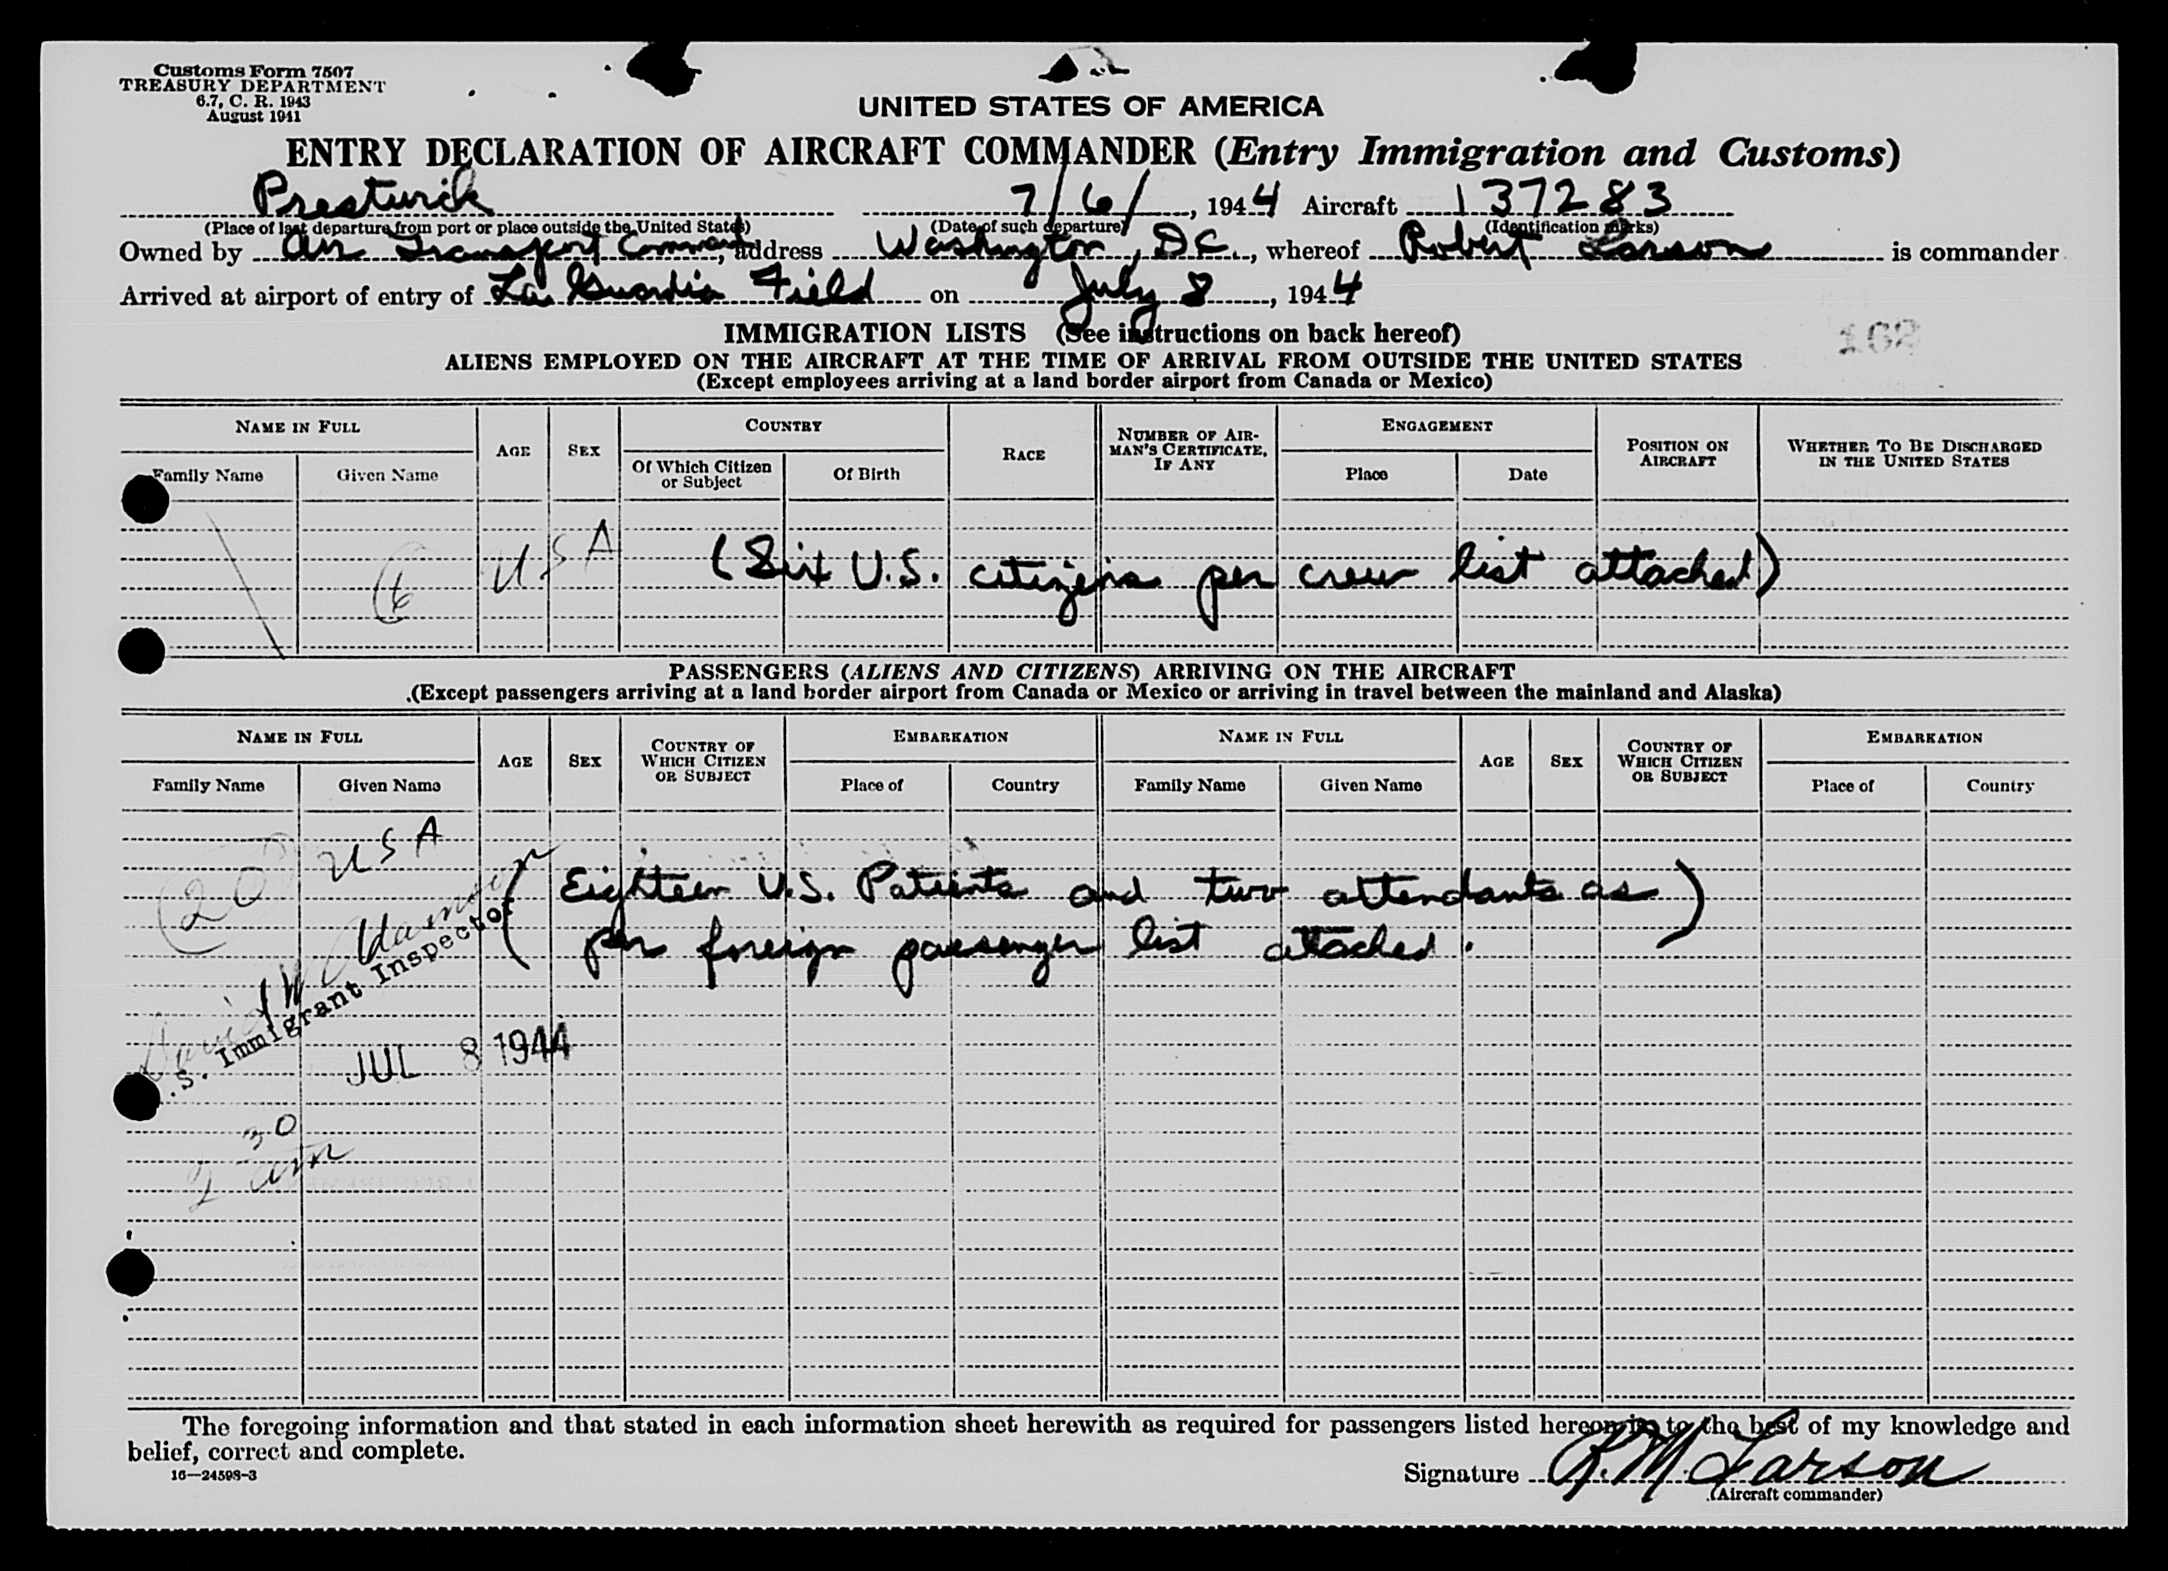 Customs Form 7507
TREASURY DEPARTMENT
6.7, C. R. 1943
August 1941
UNITED STATES OF AMERICA
ENTRY DECLARATION OF AIRCRAFT COMMANDER (Entry Immigration and Customs)
Prestwick 7/6/, 1944 Aircraft 137283
(Place of last departure from port or place outside the United States) (Date of such departure) (Identification marks)
Owned by Air Transport Command, address Washington, D.C., whereof Robert Larson is commander
Arrived at airport of entry of La Guardia Field on July 8, 1944
IMMIGRATION LISTS (See instructions on back hereof)
168
ALIENS EMPLOYED ON THE AIRCRAFT AT THE TIME OF ARRIVAL FROM OUTSIDE THE UNITED STATES
(Except employees arriving at a land border airport from Canada or Mexico)
NAME IN FULL AGE SEX COUNTRY RACE NUMBER OF AIRMAN'S CERTIFICATE, IF ANY ENGAGEMENT POSITION ON AIRCRAFT WHETHER TO BE DISCHARGED IN THE UNITED STATES
Family Name Given Name Of Which Citizen or Subject Of Birth Place Date
6 USA (Six U.S. citizens per crew list attached)
PASSENGERS (ALIENS AND CITIZENS) ARRIVING ON THE AIRCRAFT
(Except passengers arriving at a land border airport from Canada or Mexico or arriving in travel between the mainland and Alaska)
NAME IN FULL AGE SEX COUNTRY OF WHICH CITIZEN OR SUBJECT EMBARKATION NAME IN FULL AGE SEX COUNTRY OF WHICH CITIZEN OR SUBJECT EMBARKATION
Family Name Given Name Place of Country Family Name Given Name Place of Country
(20) USA
(Eighteen U.S. Patients and two attendants as)
per foreign passenger list attached.
David W
S. Immigrant Inspector
JUL 8 1944
2 30 am
The foregoing information and that stated in each information sheet herewith as required for passengers listed hereon is to the best of my knowledge and
belief, correct and complete.
16—24598-3
Signature R.M. Larson
(Aircraft commander)